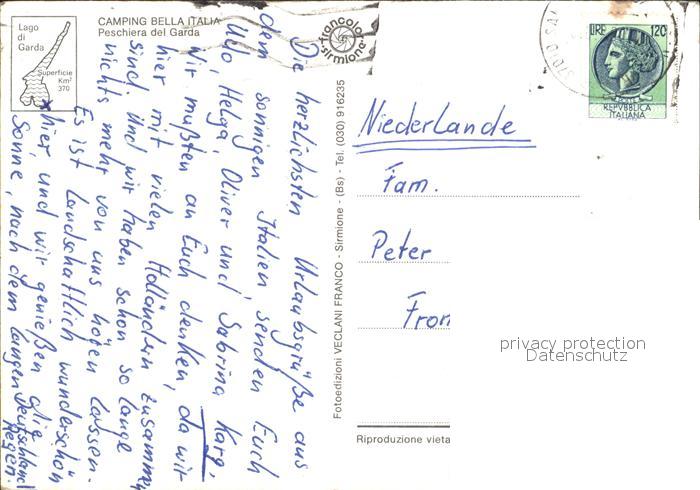 Lago
di
Garda
Superficie
Km²
370
CAMPING BELLA ITALIA
Peschiera del Garda
francolor
sirmione
LIRE 120
POSTE
REPVBBLICA
ITALIANA
Die herzlichsten Urlaubsgrüße aus
dem sonnigen Italien senden Euch
Udo, Helga, Oliver und Sabrina Karg.
Wir mußten an Euch denken, da wir
hier mit vielen Holländern zusammen
sind. Und wir haben schon so lange
nichts mehr von uns hören lassen.
Es ist Landschaftlich wunderschön
x hier, und wir genießen die
Sonne, nach dem langen Deutschland
Regen.
Fotoedizioni VECLANI FRANCO - Sirmione - (Bs) - Tel. (030) 916235
Niederlande
Fam.
Peter
Fron
privacy protection
Datenschutz
Riproduzione vieta